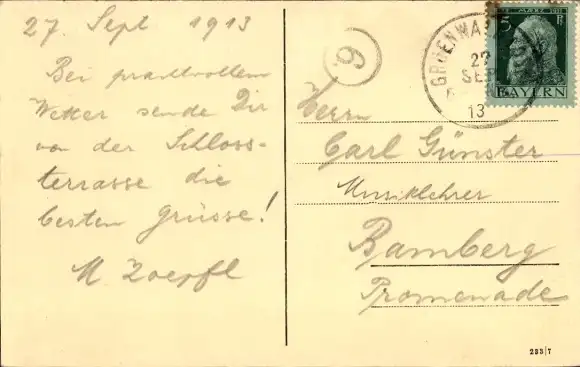 27. Sept 1913
Bei prachtvollem
Wetter sende Dir
von der Schloss-
terrasse die
besten Grüsse!
M. Zoepfl
6
GRUENWA
27
SEP
13
12. MÄRZ 1911
5 Pf
BAYERN
Herrn
Carl Günster
Musiklehrer
Bamberg
Promenade
233/7